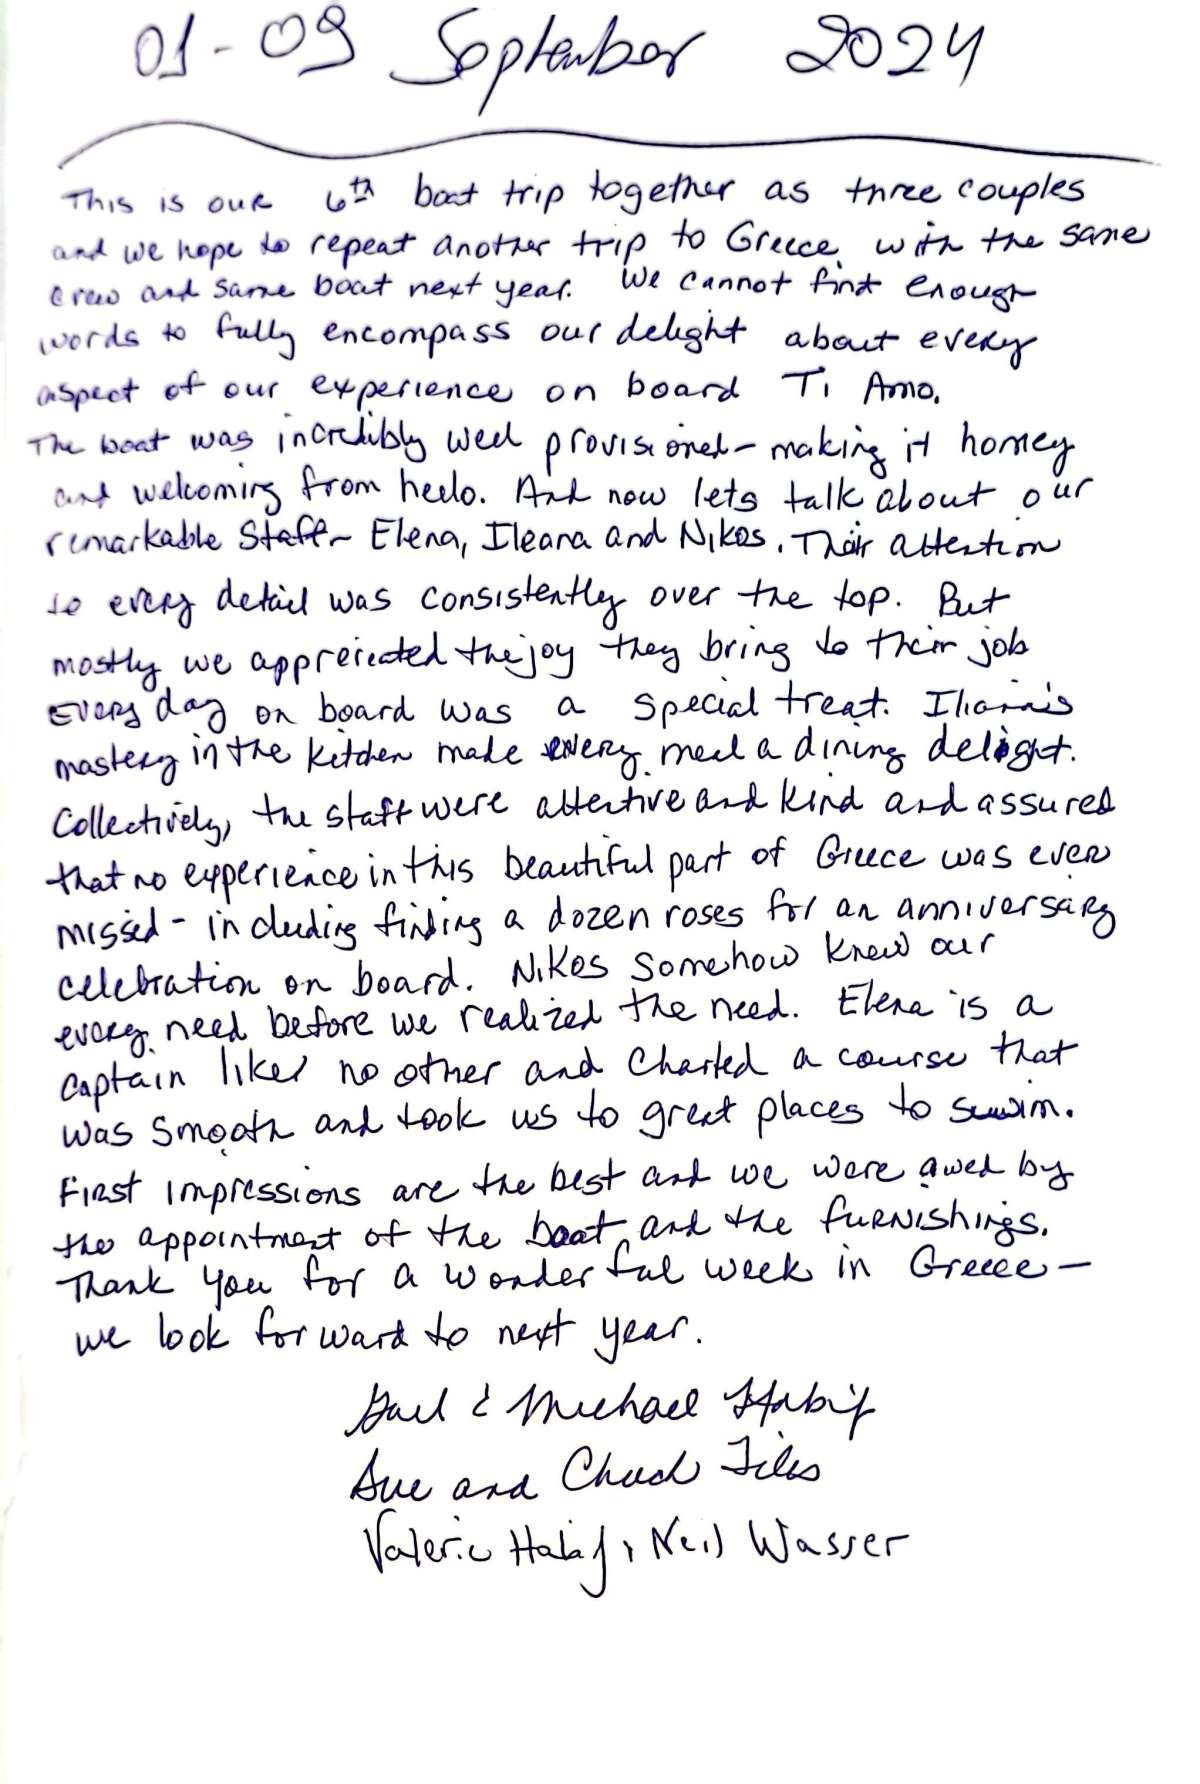 01-09 September 2024
This is our 6th boat trip together as three couples
and we hope to repeat another trip to Greece with the same
crew and same boat next year. We cannot find enough
words to fully encompass our delight about every
aspect of our experience on board Ti Amo.
The boat was incredibly well provisioned - making it homey
and welcoming from hello. And now lets talk about our
remarkable Staff - Elena, Ileana and Nikos. Their attention
to every detail was consistently over the top. But
mostly we appreciated the joy they bring to their job
Every day on board was a special treat. Iliana's
mastery in the kitchen made every meal a dining delight.
Collectively, the staff were attentive and kind and assured
that no experience in this beautiful part of Greece was ever
missed - including finding a dozen roses for an anniversary
celebration on board. Nikos somehow knew our
every need before we realized the need. Elena is a
captain like no other and charted a course that
was smooth and took us to great places to swim.
First impressions are the best and we were awed by
the appointment of the boat and the furnishings.
Thank you for a wonderful week in Greece -
we look forward to next year.
Gail & Michael Habif
Sue and Chuck
Valerie Habif, Neil Wasser